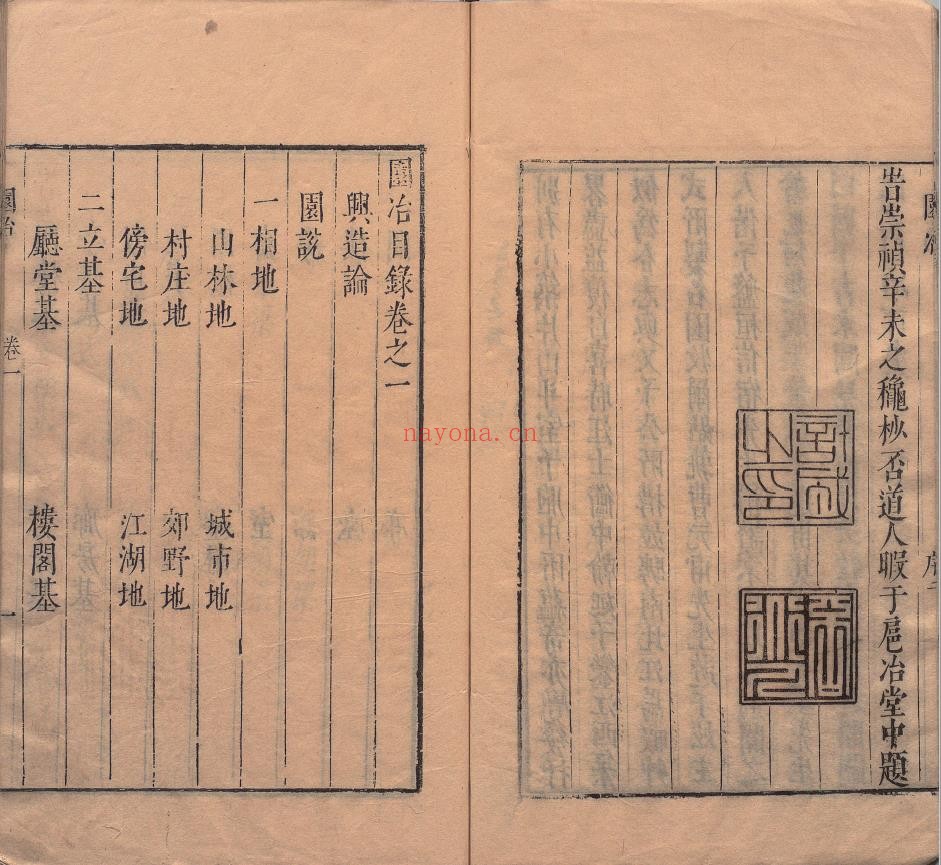 園冶
旹崇禎辛未之龝杪否道人暇于扈冶堂中題
計成之印
園冶目錄卷之一
興造論
園說
一相地
山林地 城市地
村庄地 郊野地
傍宅地 江湖地
二立基
廳堂基 樓閣基
園冶 卷一 一
nayona.cn